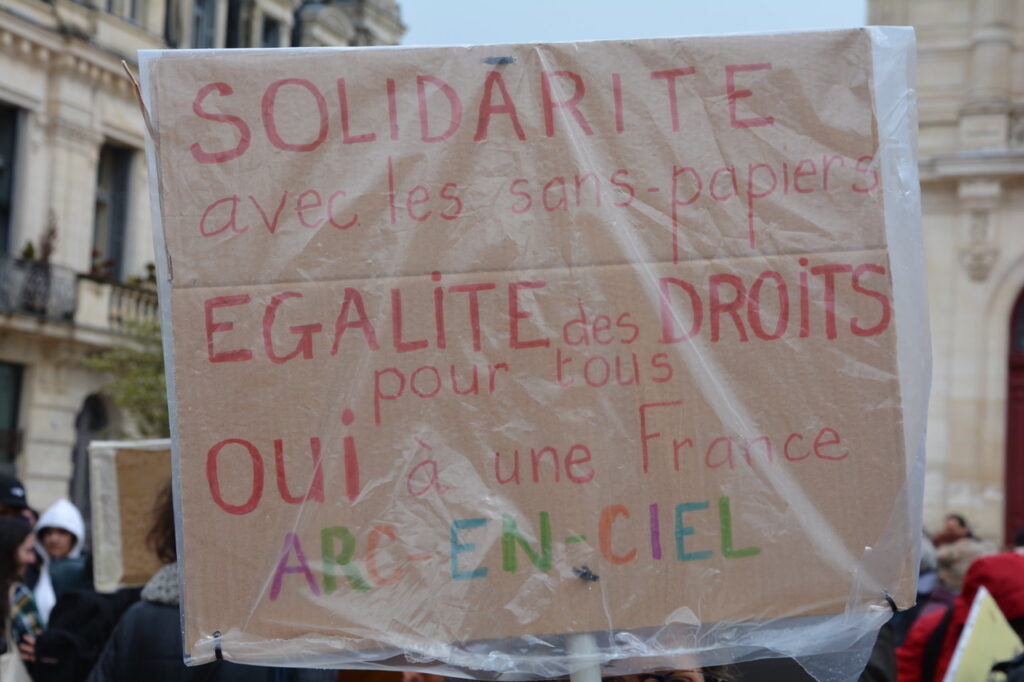 SOLIDARITE
avec les sans-papiers
EGALiTE des DROiTS
pour tous
OUi à une France
ARC-EN-CIEL